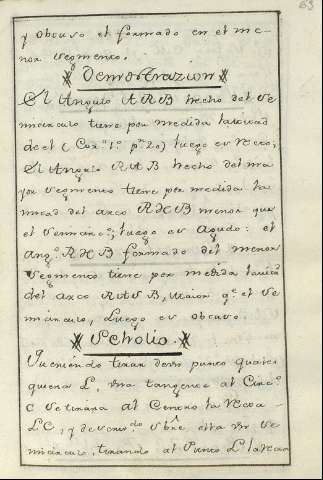 63
y obtuso el formado en el me-
nor segmento.
Demostrazion
El Angulo ARB hecho del se-
micirculo tiene por medida la mitad
de el (Cor.º 1.º p.ª 20) luego es recto;
El Angulo RAB hecho del ma
yor segmento tiene por medida la
mitad del arco RXB menor que
el semicirc.º; luego es Agudo: el
Ang.º RXB formado del menor
segmento tiene por medida la mitad
del arco RASB, maior q.e el se
micirculo, Luego es obtuso.
Scholio.
Queriendo tirar desde punto qual
quiera L, una tangente al Circ.º
C se tirara al Centro la recta
LC, y sobre ella un se
micirculo, tirando al Punto L la recta